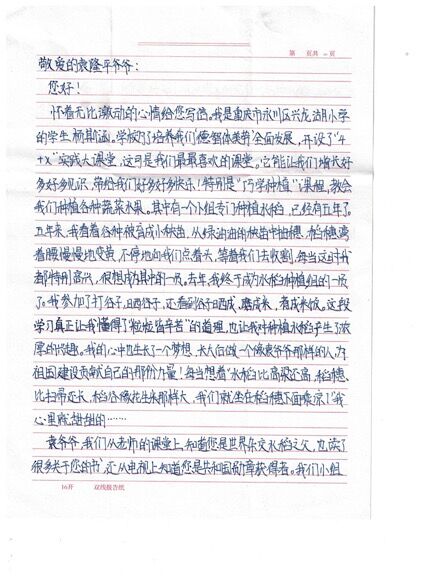 第 页共 页
敬爱的袁隆平爷爷：
您好！
怀着无比激动的心情给您写信。我是重庆市永川区兴龙湖小学
的学生杨斯涵。学校为了培养我们德智体美劳全面发展，开设了“4
+x”实践大课堂，这可是我们最最喜欢的课堂。它能让我们增长好
多好多见识，带给我们好多好多快乐！特别是“巧学种植”课程，教会
我们种植各种蔬菜水果。其中有一个小组专门种植水稻，已经有五年了。
五年来，我看着谷种被育成小秧苗，从绿油油的秧苗中抽穗，稻穗弯
着腰慢慢地变黄，不停地向我们点着头，等着我们去收割，每当这时我
都特别高兴，很想成为其中的一员。去年，我终于成为水稻种植组的一员
了。我参加了打谷子，晒谷子，还看到谷子晒成，磨成米，煮成米饭。这段
学习真正让我懂得了“粒粒皆辛苦”的道理，也让我对种植水稻产生了浓
厚的兴趣。我的心中也生长了一个梦想，长大后做一个像袁爷爷那样的人，为
祖国建设贡献自己的那份力量！每当想着“水稻比高粱还高，稻穗
比扫帚还长，稻谷像花生米那样大，我们就坐在稻穗下面乘凉！”我
心里就甜甜的……
袁爷爷，我们从老师的课堂上，知道您是世界杂交水稻之父，也读了
很多关于您的书，还从电视上知道您是共和国勋章获得者。我们小组
16开 双线报告纸